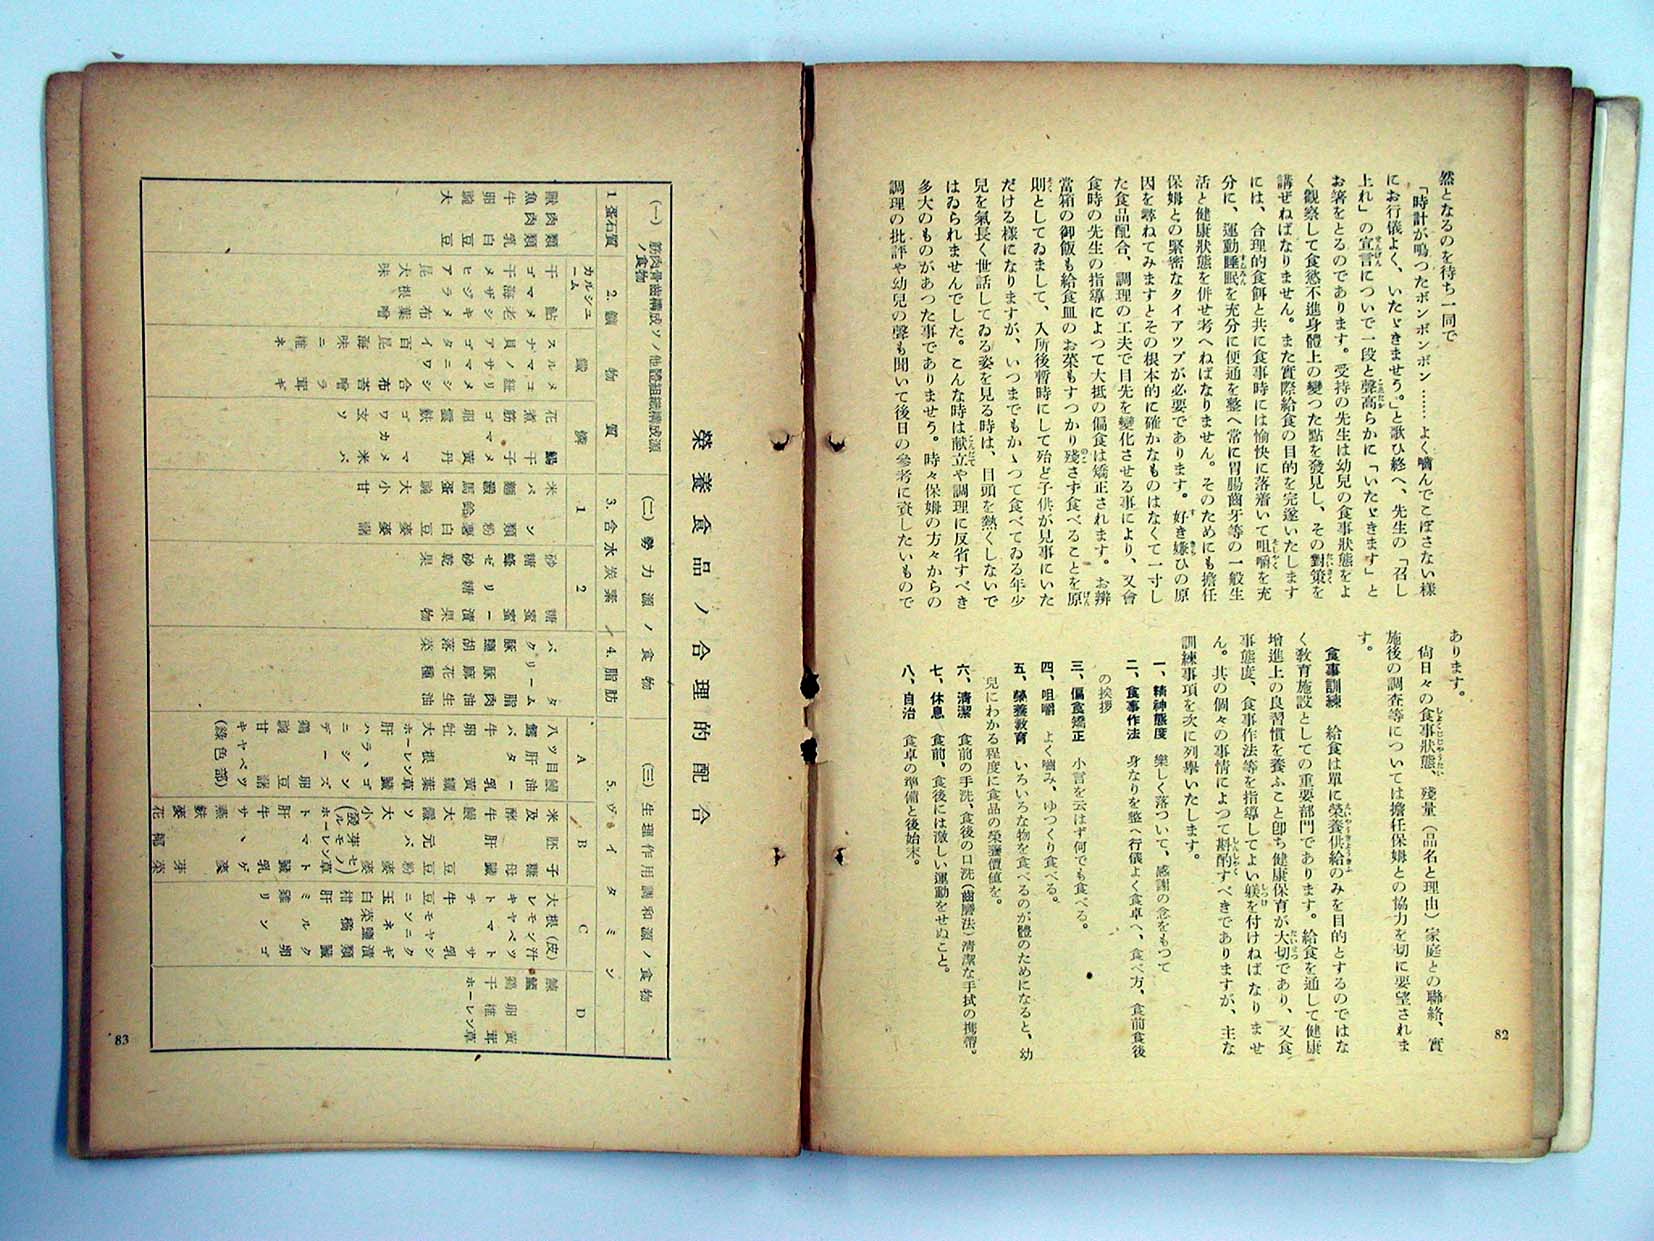 82
然となるのを待ち一同で
「時計が鳴つたボンボンボン……よく嚙んでこぼさない樣
にお行儀よく、いたゞきませう。」と歌ひ終へ、先生の「召し
上れ」の宣言についで一段と聲高らかに「いたゞきます」と
お箸をとるのであります。受持の先生は幼兒の食事狀態をよ
く觀察して食慾不進身體上の變つた點を發見し、その對策を
講ぜねばなりません。また實際給食の目的を完遂いたします
には、合理的食餌と共に食事時には愉快に落着いて咀嚼を充
分に、運動睡眠を充分に便通を整へ常に胃腸齒牙等の一般生
活と健康狀態を併せ考へねばなりません。そのためにも擔任
保姆との緊密なタイアツプが必要であります。好き嫌ひの原
因を尋ねてみますとその根本的に確かなものはなくて一寸し
た食品配合、調理の工夫で目先を變化させる事により、又會
食時の先生の指導によつて大抵の偏食は矯正されます。お辨
當箱の御飯も給食皿のお菜もすつかり殘さず食べることを原
則としてゐまして、入所後暫時にして殆ど子供が見事にいた
だける樣になりますが、いつまでもかゝつて食べてゐる年少
兒を氣長く世話してゐる姿を見る時は、目頭を熱くしないで
はゐられませんでした。こんな時は献立や調理に反省すべき
多大のものがあつた事でありませう。時々保姆の方々からの
調理の批評や幼兒の聲も聞いて後日の參考に資したいもので
あります。
尙日々の食事狀態、殘量（品名と理由）家庭との聯絡、實
施後の調査等については擔任保姆との協力を切に要望されま
す。
食事訓練　給食は單に榮養供給のみを目的とするのではな
く敎育施設としての重要部門であります。給食を通して健康
增進上の良習慣を養ふこと卽ち健康保育が大切であり、又食
事態度、食事作法等を指導してよい躾を付けねばなりませ
ん。共の個々の事情によつて斟酌すべきでありますが、主な
訓練事項を次に列擧いたします。
一、精神態度　樂しく落ついて、感謝の念をもつて
二、食事作法　身なりを整へ行儀よく食卓へ、食べ方、食前食後
の挨拶
三、偏食矯正　小言を云はず何でも食べる。
四、咀嚼　よく嚙み、ゆつくり食べる。
五、榮養敎育　いろいろな物を食べるのが體のためになると、幼
兒にわかる程度に食品の榮養價値を。
六、淸潔　食前の手洗、食後の口洗（齒磨法）淸潔な手拭の携帶。
七、休息　食前、食後には激しい運動をせぬこと。
八、自治　食卓の準備と後始末。
榮養食品ノ合理的配合
（一）筋肉骨齒構成ソノ他體組織構成源ノ食物
（二）勢力源ノ食物
（三）生理作用調和源ノ食物
1 蛋白質
2. 鑛物質
3. 含水炭素
4. 脂肪
5. ヴィタミン
カルシューム
鐵
燐
1
2
A
B
C
D
獸肉類
魚肉類
牛乳
卵白
豌豆
大豆
干鮎
ゴマメ
干海老
メザシ
ヒジキ
アラメ
昆布
大根葉
味噌
スルメ
ナマコ
アサリ
ゴマメ
タニシ
百合
昆布
海苔
味噌
ニラ
椎茸
ネギ
花鰹
煮干
筋子
ゴマメ
卵黃
ゴマ
ワカメ
玄米
ソバ
米
パン
麵類
澱粉
馬鈴薯
蛋白
豌豆
大麥
小麥
甘藷
砂糖
糖蜜
蜂蜜
ゼリー
砂糖漬
乾果
果物
バタ
クリーム
豚脂
鹽豚肉
胡麻油
落花生
菜種油
八ツ目鰻
鱈肝油
バター
牛乳
卵黃
牡蠣
大根葉
ホーレン草
肝臟
ハラゝゴ
ニシン
チーズ
鷄卵
豌豆
甘藷
キャベツ
（綠色部）
米胚子
及糠
酵母
牛肝臟
鰻
大豆
ソバ粉
大麥
小麥
ホーレン草
トマト
肝臟
牛乳
大根（皮）
レモン汁
キャベツ
トマト
チサ
牛乳
豆モヤシ
ニンニク
玉ネギ
白菜鹽漬
柑橘類
肝臟
ミルク
雞卵
リンゴ
鰊
鱧
鷄卵黃
干椎茸
ホーレン草
83